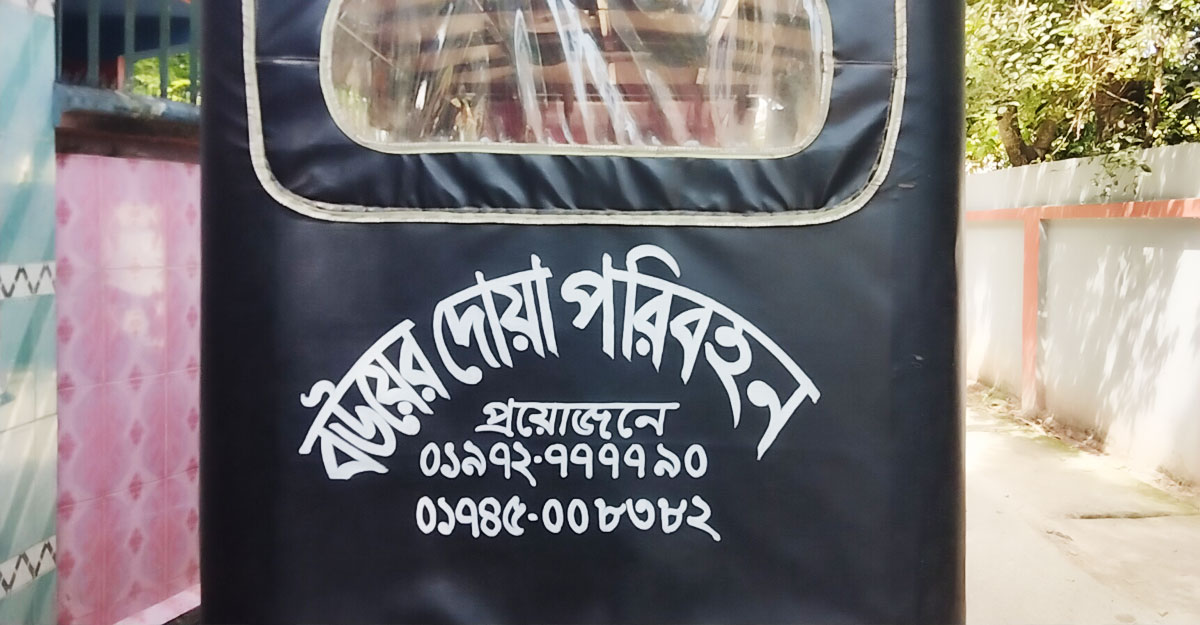 বউয়ের দোয়া পরিবহন
প্রয়োজনে
০১৯৭২-৭৭৭৭৯০
০১৭৪৫-০০৮৩৮২